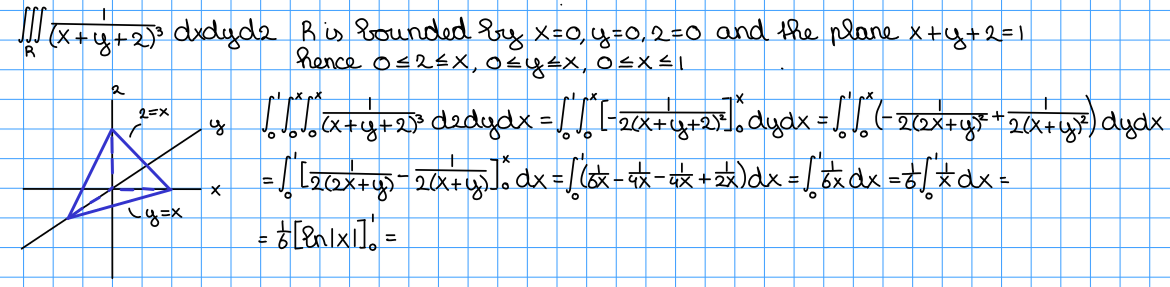 ∭_R 1/(x+y+z)³ dxdydz R is bounded by x=0, y=0, z=0 and the plane x+y+z=1
hence 0≤z≤x, 0≤y≤x, 0≤x≤1
z
z=x
y
x
y=x
∫₀¹∫₀ˣ∫₀ˣ 1/(x+y+z)³ dzdydx = ∫₀¹∫₀ˣ [-1/(2(x+y+z)²)]₀ˣ dydx = ∫₀¹∫₀ˣ (-1/(2(2x+y)²) + 1/(2(x+y)²)) dydx
= ∫₀¹ [1/(2(2x+y)) - 1/(2(x+y))]₀ˣ dx = ∫₀¹ (1/6x - 1/4x - 1/4x + 1/2x) dx = ∫₀¹ 1/6x dx = 1/6 ∫₀¹ 1/x dx =
= 1/6 [ln|x|]₀¹ =